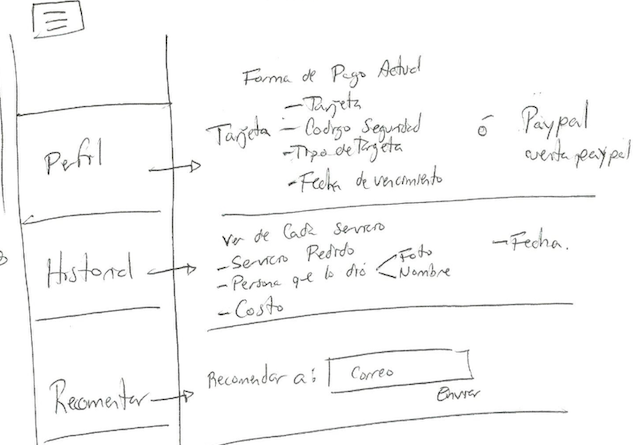 Forma de Pago Actual
Perfil
Tarjeta
- Tarjeta
- Codigo Seguridad
- Tipo de Tarjeta
- Fecha de vencimiento
ó
Paypal
cuenta paypal
Historial
Ver de Cada Servicio
- Servicio Pedido
- Persona que lo dió
Foto
Nombre
- Costo
- Fecha.
Recomentar
Recomendar a:
Correo
Enviar